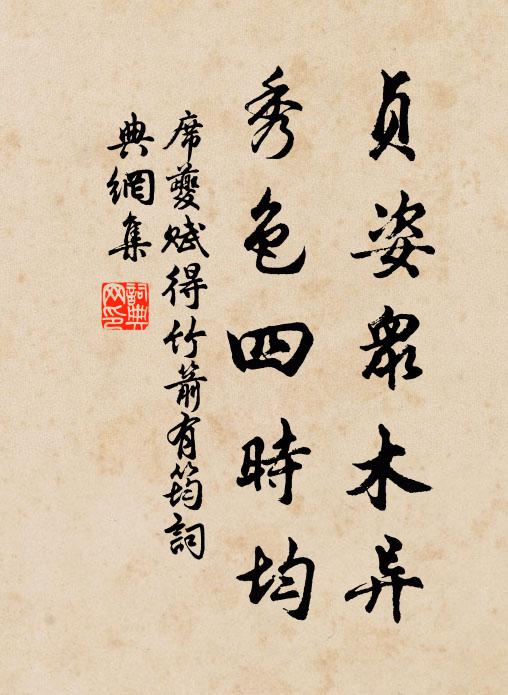 貞姿眾木异
秀色四時均
席夔賦得竹箭有筠詞
典網集
詞典网印